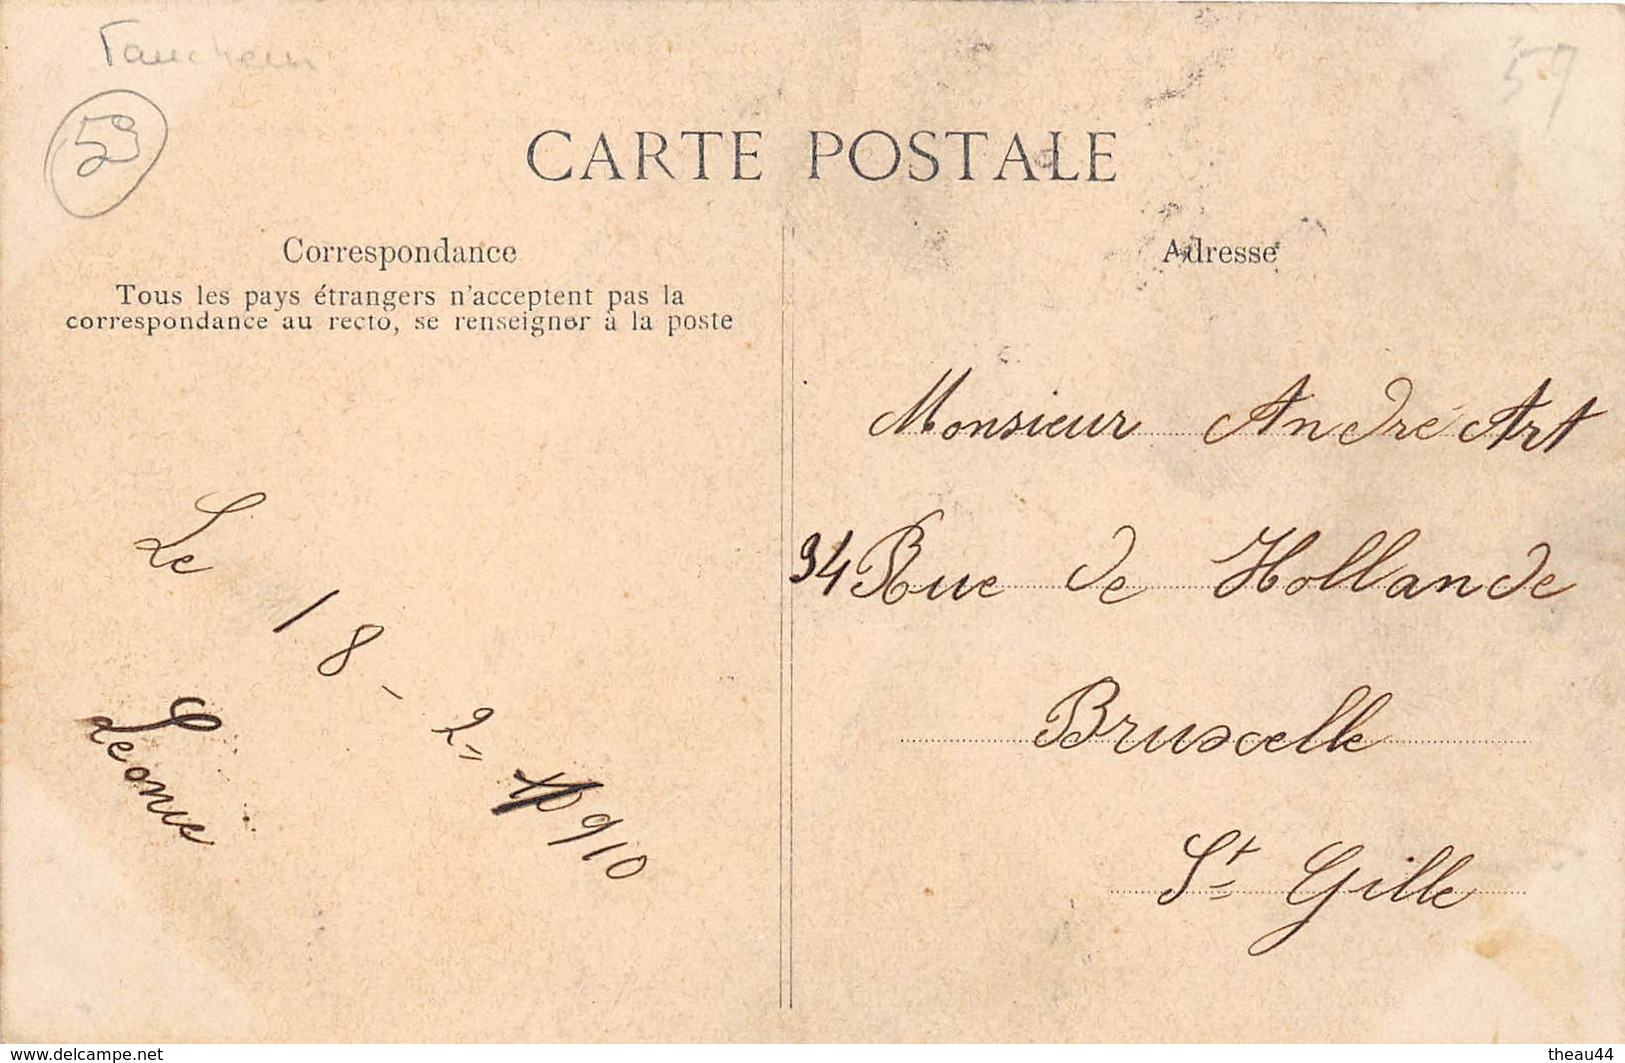 59
CARTE POSTALE
Correspondance
Tous les pays étrangers n'acceptent pas la
correspondance au recto, se renseigner à la poste
Le 18-2=1910
Léonie
Adresse
Monsieur André Art
94 Rue de Hollande
Bruxelle
St Gille
www.delcampe.net
theau44